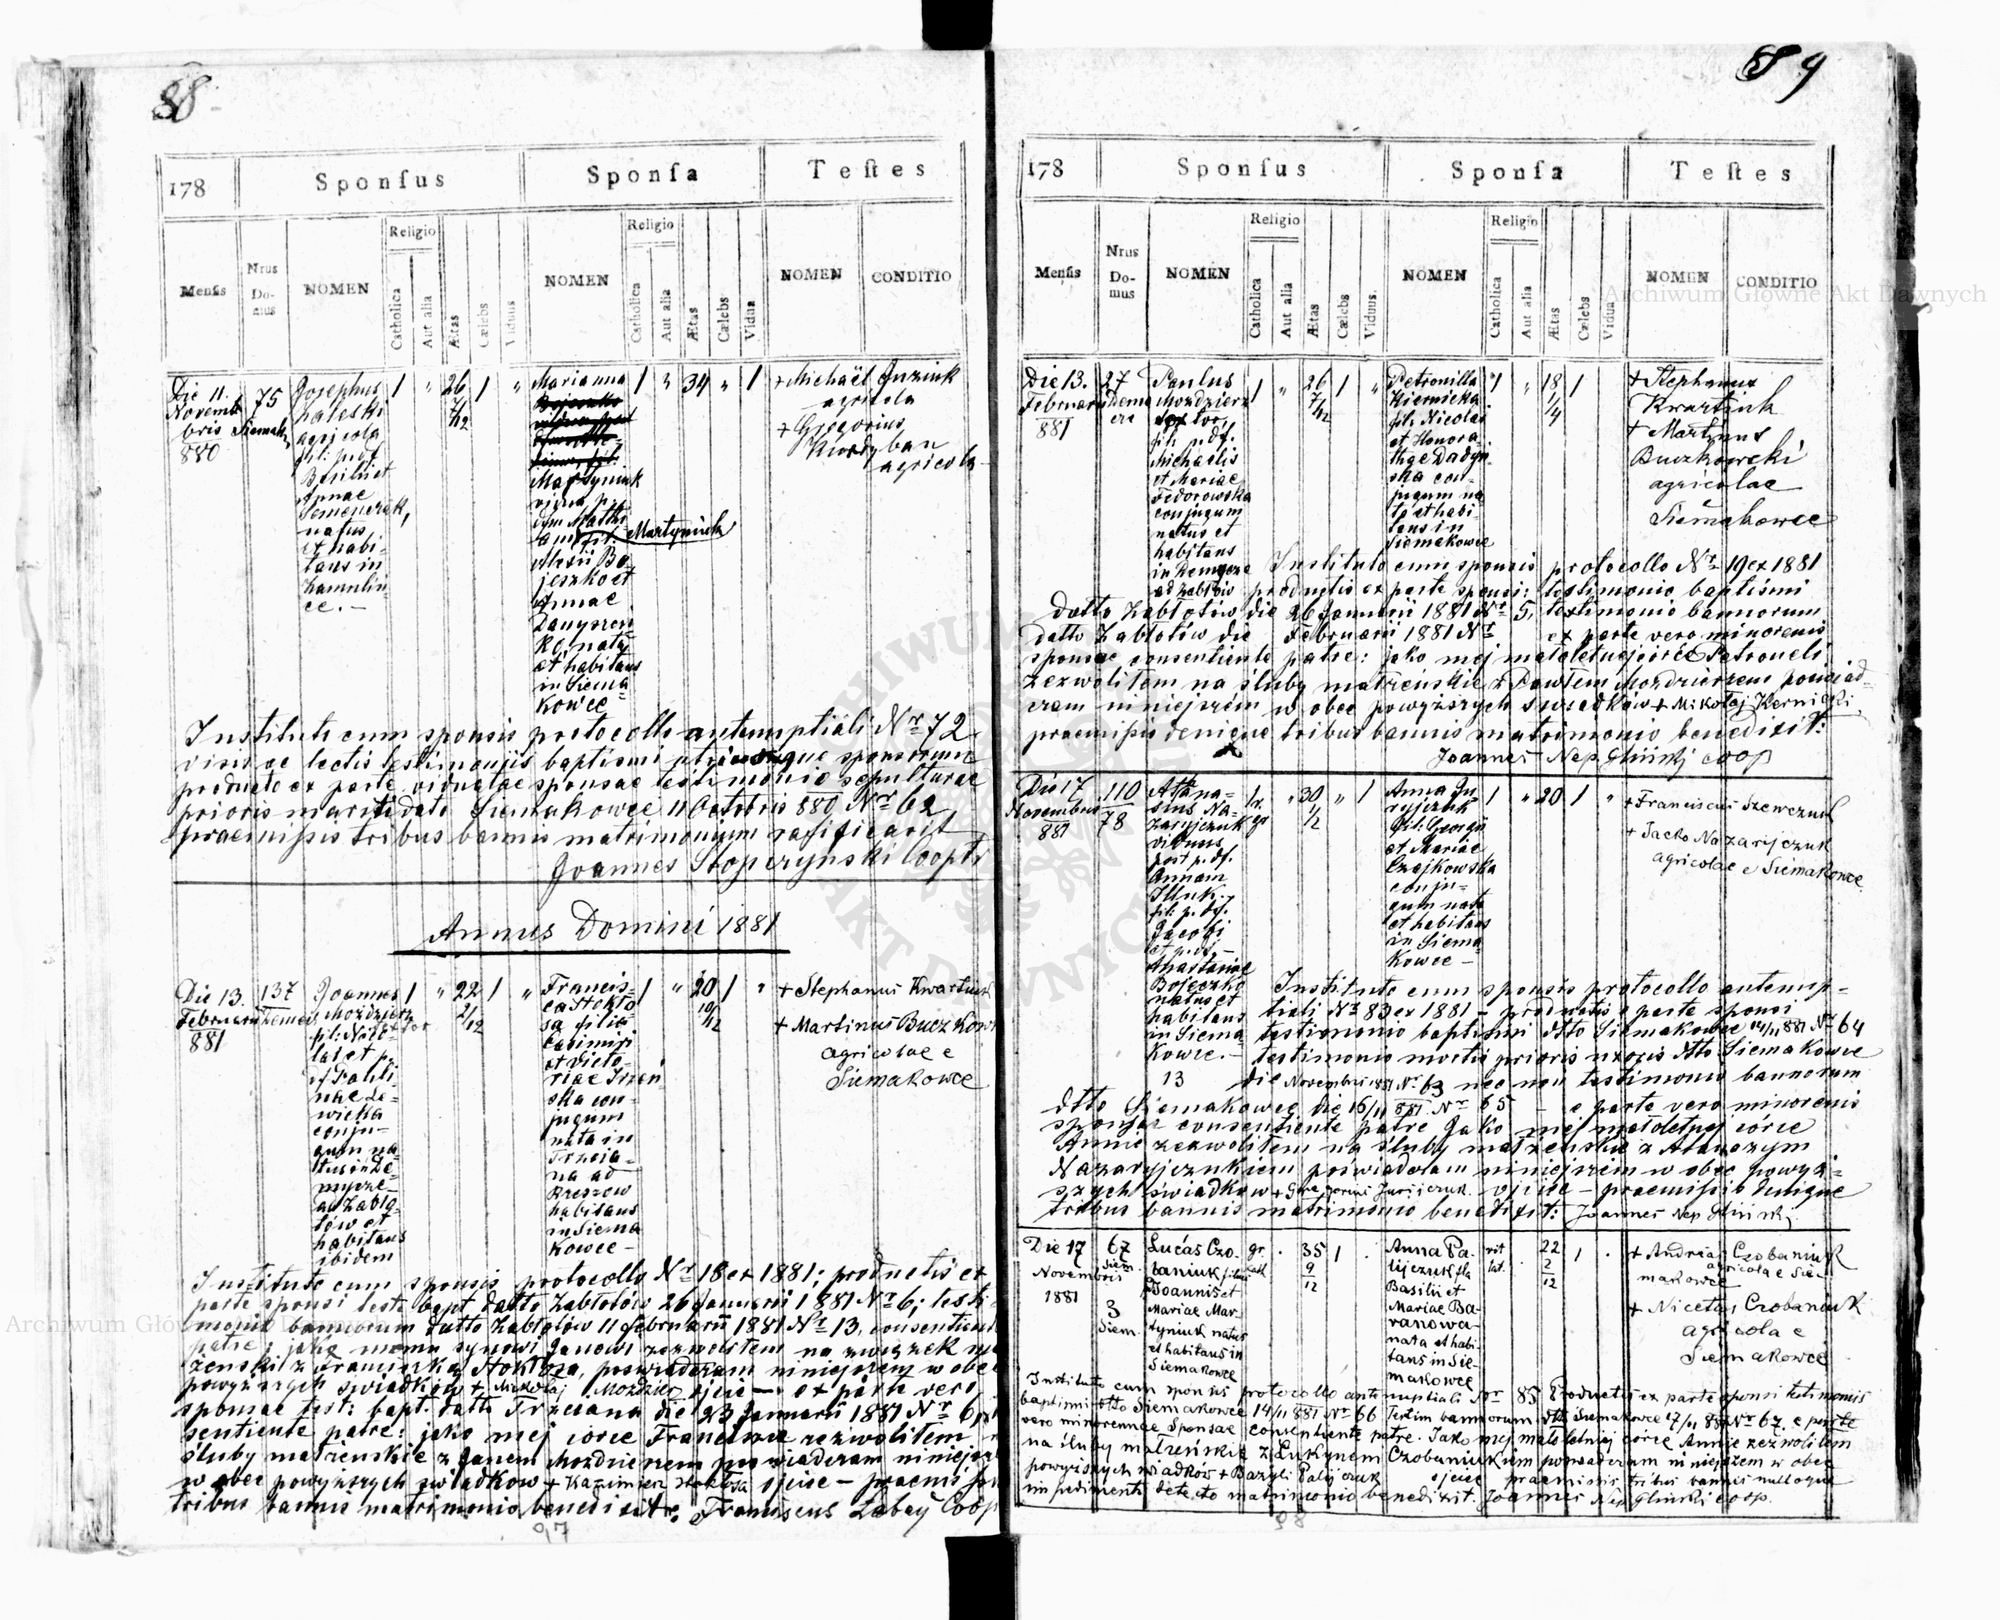 88
178
Sponſus
Sponſa
Teſtes
Menſis
Nrus Domus
NOMEN
Religio
Catholica
Aut alia
Ætas
Cælebs
Viduus
NOMEN
Religio
Catholica
Aut alia
Ætas
Cælebs
Vidua
NOMEN
CONDITIO
Die 11.
Novem
bris
880
75
Siemak
Josephus
Haleski
agricola
fil: p. df
Basilii et
Annae
Semenczuk,
natus
et habi-
tans in
Hamulin
ce. –
1
"
26
7/12
1
"
Marianna
Martyniuk
vidua p.
dfm Matthi
am fil. Martyniuk
Alexii Bo
jeszko et
Annae
nata
et habitans
in Siema
kowce
1
"
34
"
1
+ Michaël Juziuk
agricola
+ Gregorius
agricola
Instituto cum sponsis protocollo antenuptiali Nr 72
visis ac lectis testimoniis baptismi utriusque sponsorum
producto ex parte viduatae sponsae testimonio sepulturae
prioris mariti dato Siemakowce 11 Octobris 880 Nr 62
praemissis tribus bannis matrimonium ratificavit
Joannes Stopczyński Coopr
Annus Domini 1881
Die 13.
Februarii
881
137
Demeis
Joannes
Moździerz
fil: Nico-
lai et p.
df Pauli-
nae Le-
wicka
conju-
gum na-
tus in De-
mycze
ad Zabło-
tów et
habitans
ibidem
1
"
22
2/12
1
"
Francis-
ca Stokło
sa filia
Casimiri
et Victo-
riae Jrzen
ska con-
jugum
nata in
Trzcia-
na ad
Rzeszow
habitans
in Siema
kowce –
1
"
20
10/12
1
"
+ Stephanus Kwartiuk
+ Martinus Buczkow
agricolae e
Siemakowce
Instituto cum sponsis protocollo Nr 18 ex 1881; productis ex
parte sponsi teste bapt. datto Zabłotów 26 Januarii 1881 Nr 6; testi-
monio bannorum datto Zabłotów 11 februarii 1881 Nr 13, consentiente
patre: jako memu synowi Janowi zezwoliłem na związek mał
żeński z Franciszką Stokłosa, poswiadczam niniejszem w obec
powyższych świadków + Mikołaj Moździerz ojciec – ex parte vero
sponsae test: bapt. datto Trzciana die 23 Januarii 1881 Nr 6,
sentiente patre: jako mej córce Franciszce zezwoliłem
śluby matżenskie z Janem Moździerzem poswiadczam niniejsz
w obec powyższych świadków + Kazimierz Stokłosa ojciec – praemissis
tribus bannis matrimonio benedixit. Franciscus Labaÿ Coop
97
89
178
Sponſus
Sponſa
Teſtes
Menſis
Nrus Domus
NOMEN
Religio
Catholica
Aut alia
Ætas
Cælebs
Viduus.
NOMEN
Religio
Catholica
Aut alia
Ætas
Cælebs
Vidua
NOMEN
CONDITIO
Die 13.
Februarii
881
27
Demi
cze
Paulus
Moździerz
fil: p. df.
Michaelis
et Mariae
Fedorowska
conjugum
natus et
habitans
in Demycze
ad Zabłotów
1
"
26
7/12
1
"
Petronilla
Kiernicka
fil: Nicolai
et Honora-
thae Dadyn
ska con-
jugum na
ta et habi-
tans in
Siemakowce
1
"
18
1/4
1
+ Stephanus
Kwartiuk
+ Martinus
Buczkowski
agricolae
Siemakowce
Instituto cum sponsis protocollo Nr 19 ex 1881
productis ex parte sponsi: testimonio baptismi
datto Zabłotów die 26 Januarii 1881 Nr 5, testimonio bannorum
datto Zabłotów die Februarii 1881 Nr ex parte vero minorenis
sponsae consentiente patre: jako mej małoletniej córce Petroneli
zezwoliłem na śluby matżenskie z Pawłem Moździerzem poswiad-
czam niniejszém w obec powyższych swiadków + Mikołaj Kernicki
praemissis denique tribus bannis matrimonio benedixit:
Joannes Nep. Gliński coop
Die 17
Novembris
881
110
78
Atana-
sius Na-
zaryjczuk
viduus
post p. df.
Annam
Illuk.
fil: p. df.
Jacobi
et p. df. –
Anastasiae
Bojeczko
natus et
habitans
in Siema-
kowce. –
1.
gr
"
30
1/2
"
1
Anna Ju
ryjczuk
fil: Georgii
et Mariae
Czajkowska
conju-
gum nata
et habitans
in Siema-
kowce –
1
"
20
1
"
+ Franciscus Szewczuk
+ Jacko Nazarijczuk
agricolae e Siemakowce.
Instituto cum sponsis protocollo antenup-
tiali Nr 83 ex 1881 – productis e parte sponsi
testimonio baptismi dtto Siemakowce 14/11 881 Nr 64
testimonio mortis prioris uxoris dtto Siemakowce
13 die Novembris 1881 Nr 63 nec non testimonio bannorum
dtto Siemakowce die 16/11 881 Nr 65 – e parte vero minorenis
sponsae consentiente patre Jako mej małoletniej córce
Annie zezwoliłem na śluby matżenskie z Atanazym
Nazaryjczukiem poświadczam niniejszém w obec powyż-
szych świadków + Gregorius Jurijczuk ojciec – praemissis denique
tribus bannis matrimonio benedixit: Joannes Nep Gliński.
Die 17
Novembris
1881
67
Siem.
3
Siem.
Lucas Czo-
baniuk filius
Joannis et
Mariae Mar-
tyniuk natus
et habitans in
Siemakowce
gr.
cath
.
35
9
12
1
.
Anna Pa-
lijczuk fla
Basilii et
Mariae Ba-
ranowa-
nata et habi-
tans in Sie-
makowce
rit
lat.
.
22
2
12
1
.
+ Andreas Czobaniuk
agricola e Sie-
makowce
+ Nicetas Czobaniuk
agricola e
Siemakowce
Instituto cum sponsis protocollo antenuptiali Nr 85 Productis ex parte sponsi testimonio
baptismi dtto Siemakowce 14/11 881 Nr 66 Testim bannorum dtto Siemakowce 17/11 881 Nr 67. e parte
vero minorennae Sponsae consentiente patre. Jako mej małoletniej córce Annie zezwoliłem
na śluby małżeńskie z Łukynem Czobaniukiem poswiadczam niniejszem w obec
powyższych świadków + Bazyli Palijczuk ojciec praemissis tribus bannis nulloque
impedimento detecto matrimonio benedixit. Joannes Nep Gliński coop.
98
Archiwum Główne Akt Dawnych
Archiwum Główne Akt Dawnych